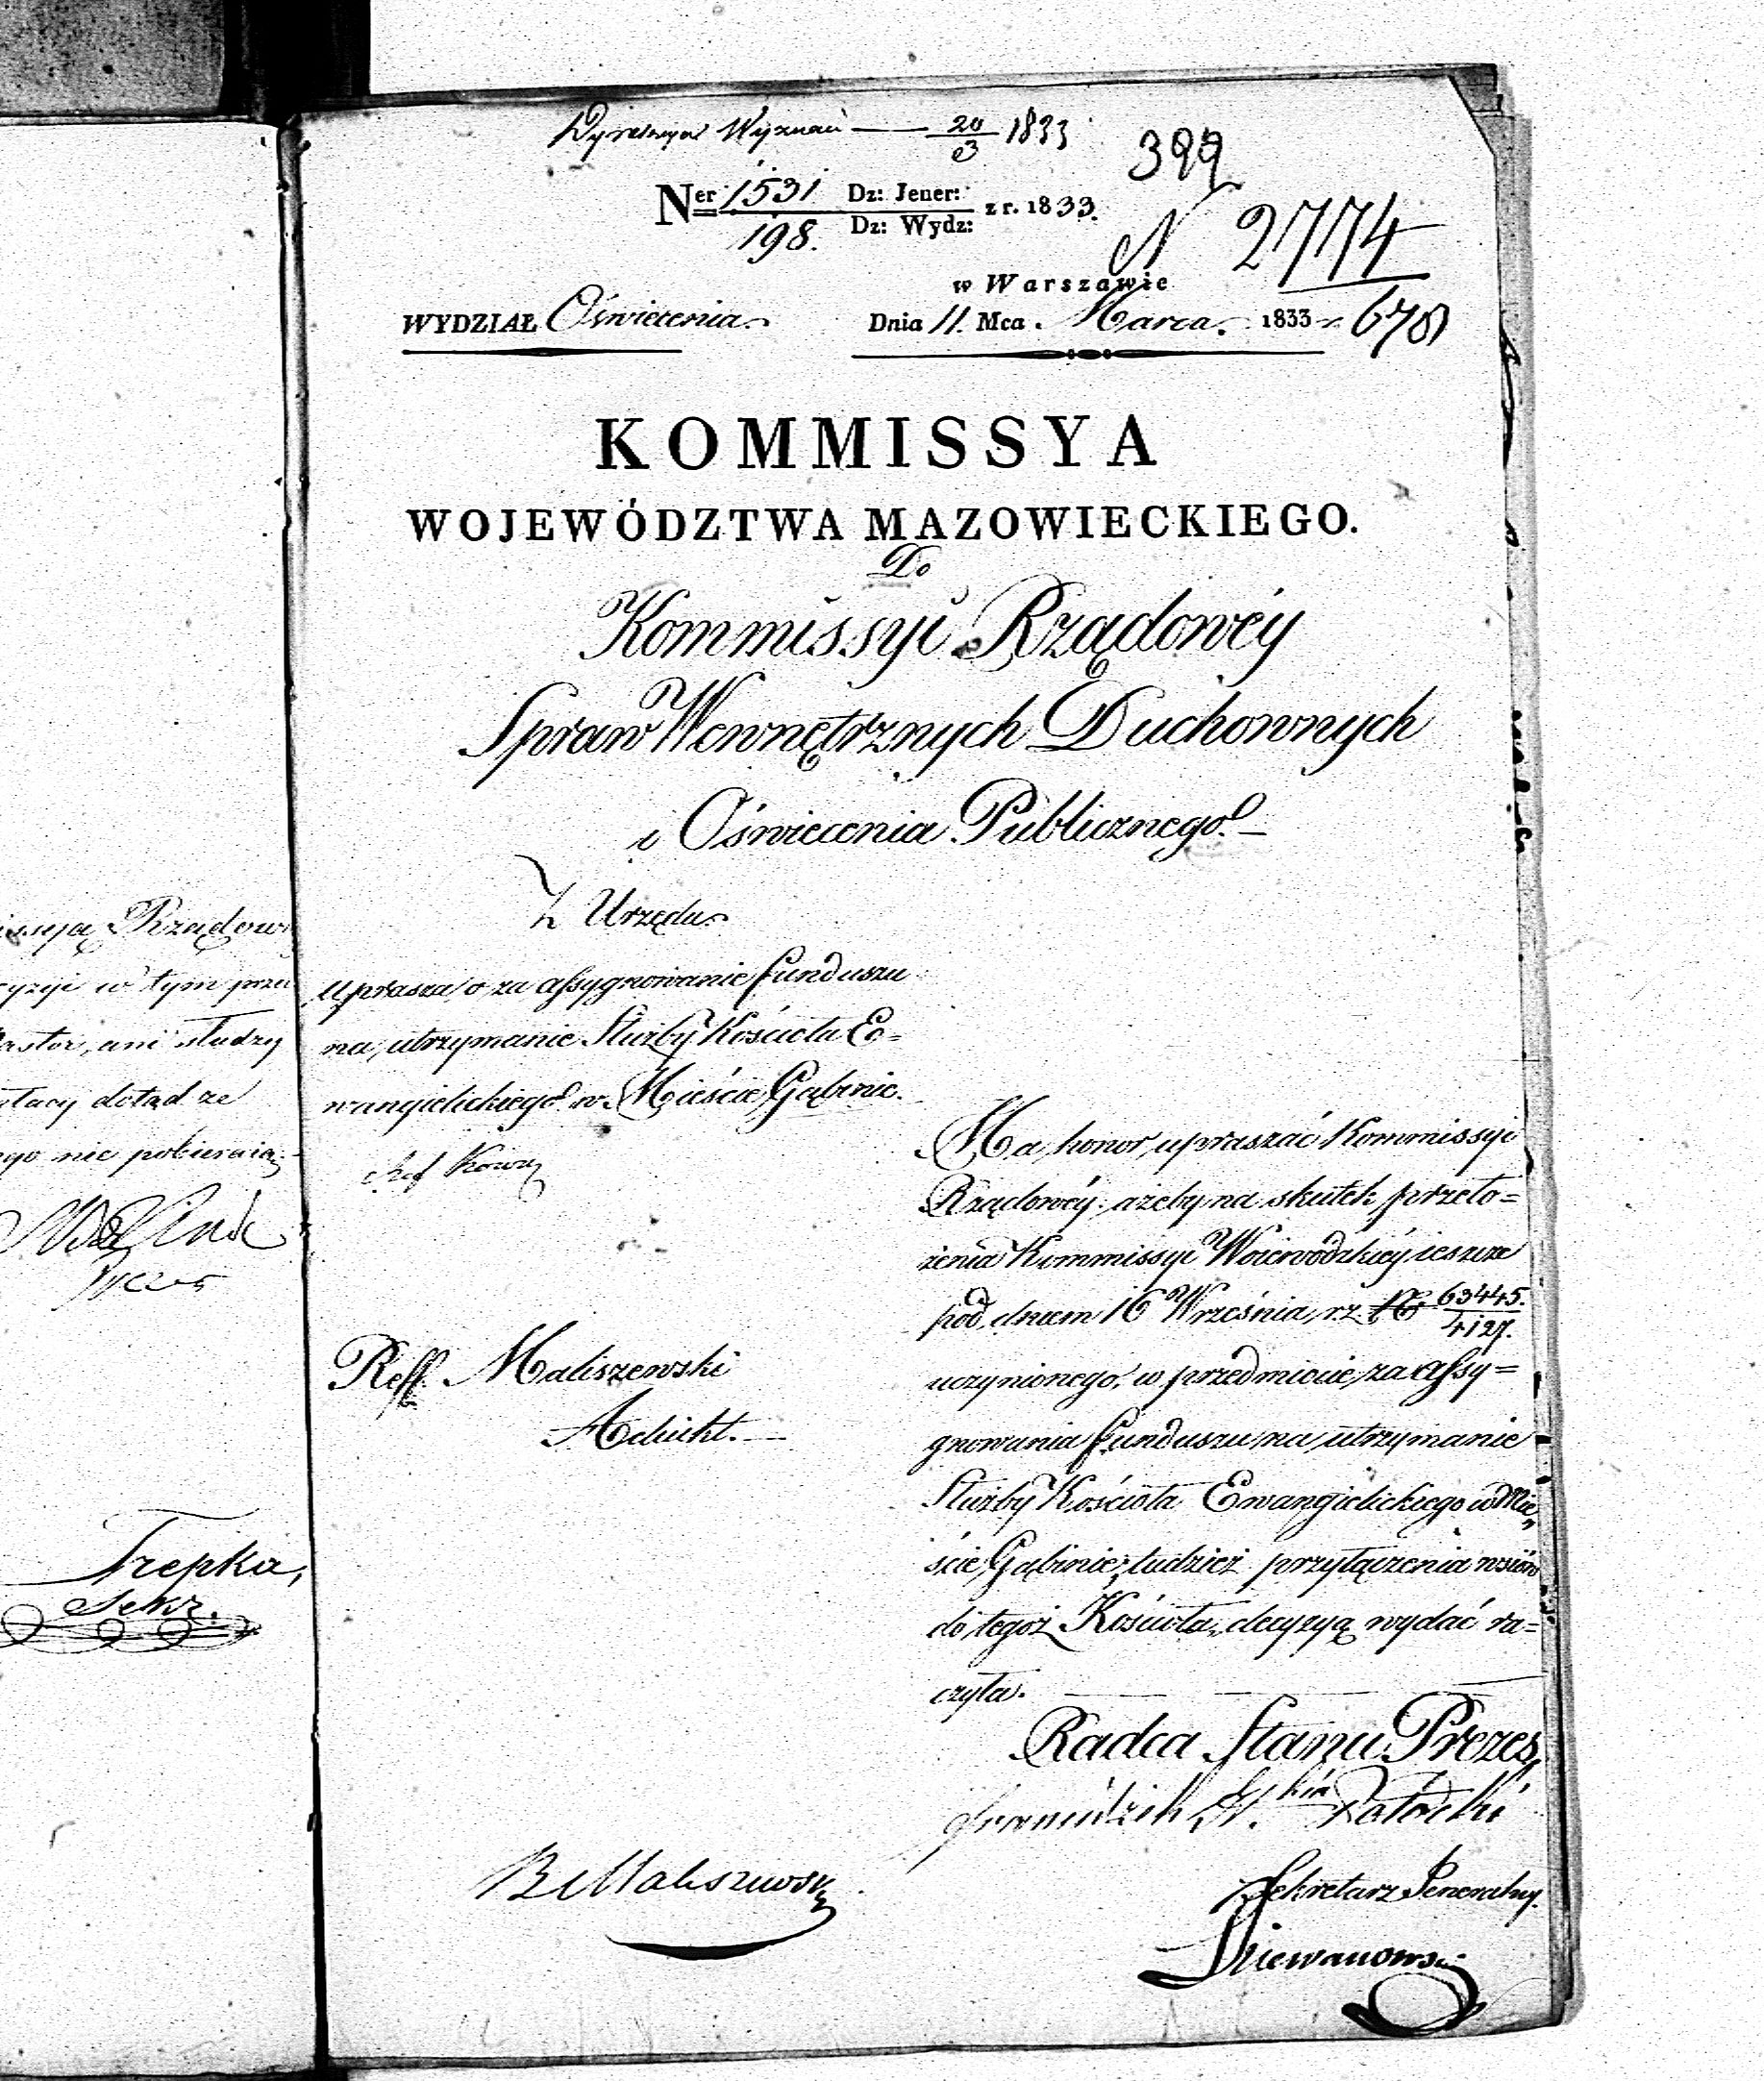 issyą Rządow
cyzyi w tym prze
Pastor, ani słudzy
dotąd ze
ego nie pobieraią
Trepka,
Sekr.
Wyznań — 20/3 1833
399
Ner 1531 Dz: Jener: z r. 1833.
198. Dz: Wydz:
N 2774
678
w Warszawie
WYDZIAŁ Oświecenia. Dnia 11. Mca. Marca. 1833 r.
KOMMISSYA
WOJEWÓDZTWA MAZOWIECKIEGO.
Do
Kommissyi Rządowéy
Spraw Wewnętrznych Duchownych
i Oświecenia Publicznego. —
Z Urzędu.
Uprasza o za assygnowanie funduszu
na utrzymanie Służby Kościoła E=
wangielickiego w Mieście Gąbinie.
Reff. Maliszewski
Adiunkt. —
Ma honor upraszać Kommissyi
Rządowéy ażeby na skutek przeło=
żenia Kommissyi Woiewodzkiéy ieszcze
pod dniem 16 Września r. z. N. 63445./4127.
uczynionego, w przedmiocie za assy=
gnowania funduszu na utrzymanie
Służby Kościoła Ewangielickiego w Mie„
ście Gąbinie, tudzież przyłączenia wsiów
do tegoż Kościoła, decyzyą wydać ra=
czyła.
Radca Stanu Prezes,
B Maliszewski
Sekretarz Jeneralny.
Dziewanowski